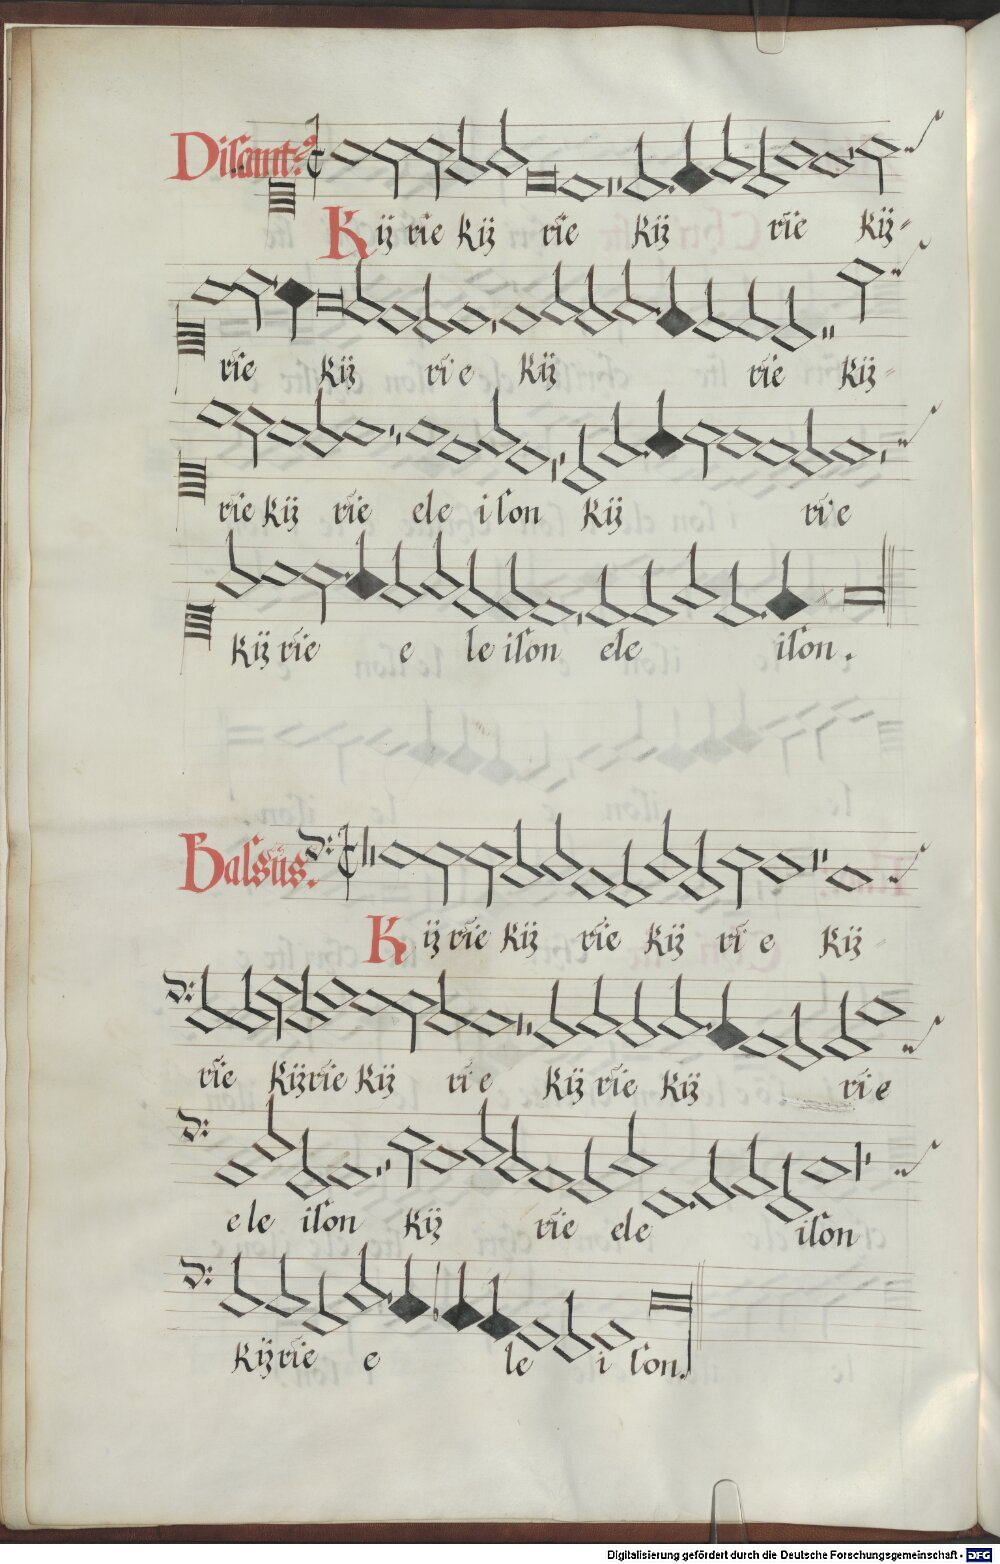 Discant:
Kÿ rie kÿ rie kÿ rie kÿ-
rie kÿ rie kÿ rie kÿ-
rie kÿ rie ele iſon kÿ rie
kÿ rie e le iſon ele iſon.
Baſsus.
Kÿ rie kÿ rie kÿ rie kÿ-
rie kÿrie kÿ rie kÿ rie kÿ rie
ele iſon kÿ rie ele iſon
kÿrie e le i ſon.
Digitalisierung gefördert durch die Deutsche Forschungsgemeinschaft - DFG